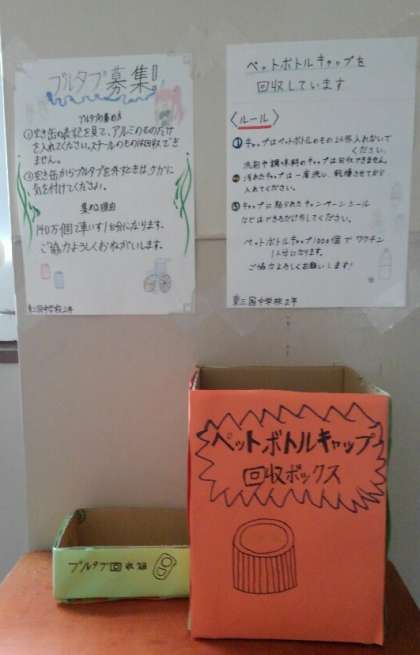 プルタブ募集!
プルタブの集め方
①空き缶の表記を見て、アルミのものだけ
を入れてください。スチールのものは回収できません。
②空き缶からプルタブを外すときは、ケガに
気を付けてください。
集める理由
140万個で車いす1台分になります。
ご協力よろしくおねがいします。
第三国中学校2年
ペットボトルキャップを
回収しています
〈ルール〉
① キャップはペットボトルのもの以外入れないで
ください。
洗剤や調味料のキャップは回収できません。
汚れたキャップは一度洗い、乾燥させてから
入れてください。
③ キャップに貼られたキャンペーンシール
などはできるだけはがしてください。
ペットボトルキャップ1000個でワクチン
1本分になります。
ご協力よろしくお願いします!
第三国中学校2年
ペットボトルキャップ
回収ボックス
プルタブ回収箱